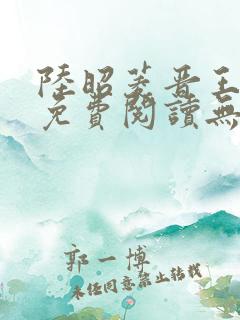 陸昭菱晉王
免費閱讀無
郭一博
未經同意禁止轉載